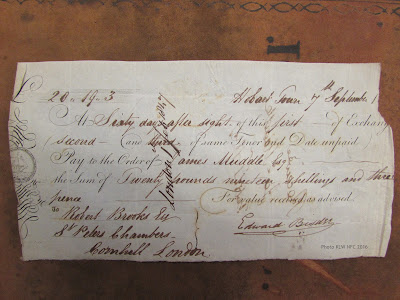 20 „ 19 „ 3 Hobart Town 7th September 1
At Sixty days after sight of this first of Exchang
(second and third of same Tenor and Date unpaid
Pay to the Order of James Muddle Esqr
the Sum of Twenty pounds nineteen shillings and three
pence For value received as advised.
To Robert Brooks Esq
St Peters Chambers Edward
Cornhill London
Photo KLW NFC 2016